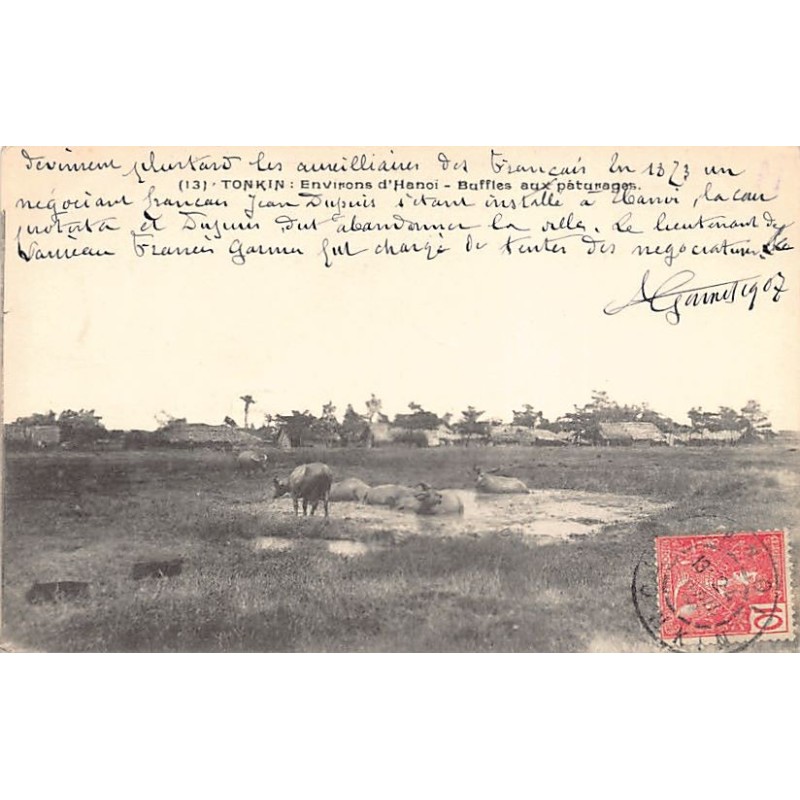 devinrent plustard les aureilliaires des Français En 1873 un
(13) - TONKIN : Environs d'Hanoi - Buffles aux pâturages.
négociant français Jean Dupuis s'étant installé à Hanoi, la cour
protesta et Dupuis dut abandonner la ville. Le lieutenant de
Vaisseau Francis Garnier fut chargé de tenter des negociations. Le
Garnet 1907
10